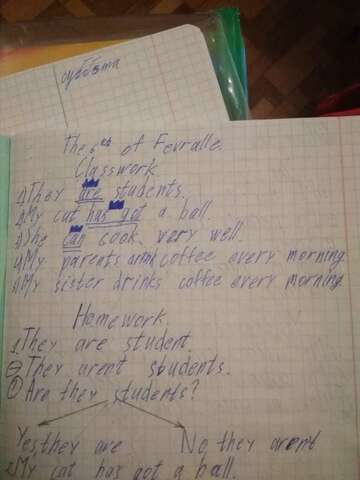 суббота
The 6th of Fevralle.
Classwork.
1) They are students.
2) My cat has got a ball.
3) She can cook very well
4) My parents coffee every morning.
5) My sister drinks coffee every morning
Homework.
1. They are student.
They arent students.
Are they students?
Yes, they are. No, they arent
2. My cat has got a ball.